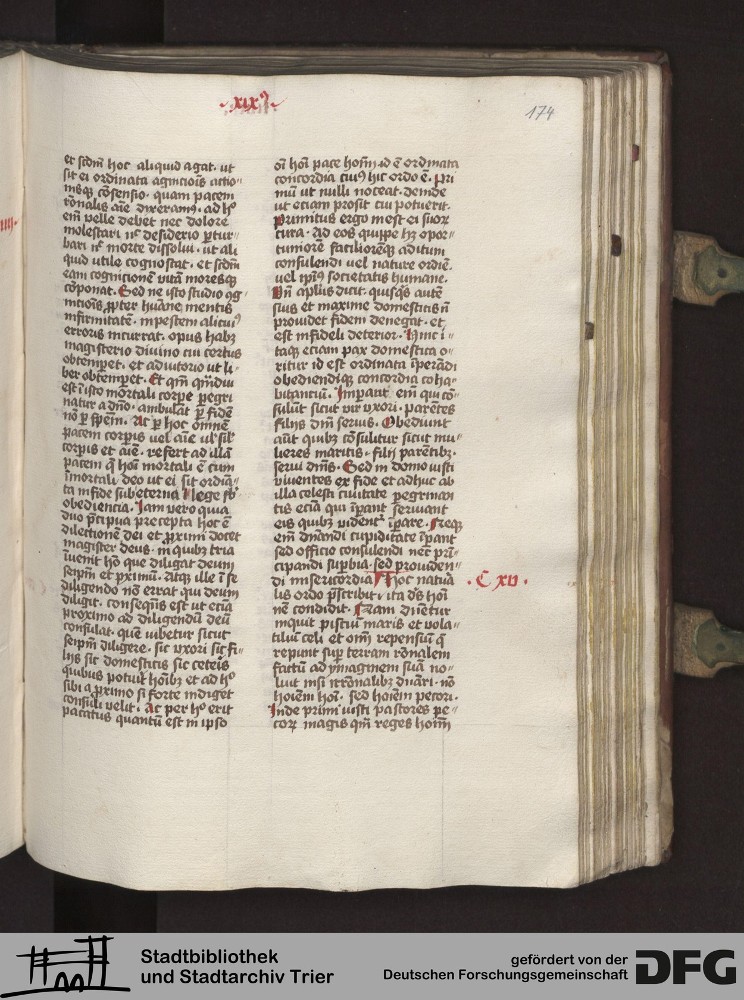 xix⁹
174
et scdm̄ hoc aliquid agat. ut
sit ei ordinata agnicōis actio⸗
nisqꝫ cōsensio. quam pacem
rōnalis aīe dixeramꝰ. ad hͦ
em̄ velle debet nec dolore
molestari nͨ desiderio ꝑtur⸗
bari nͨ morte dissolui. ut ali
quid utile cognoscat. et scdm̄
eam cognicionē vitā moresqꝫ
cōponat. Sed ne ip̄o studio cog⸗
nicōnis ꝓpter humane mentis
infirmitatē. in pestem alicuiꝰ
erroris incurrat. opus habꝫ
magisterio divino cui certus
obtemꝑet. et adiutorio ut li⸗
ber obtemꝑet. Et qm̄ qm̄diu
est ī isto mortali corpe ꝑegri
natur a dn̄o. ambulat ꝑ fidē
nō ꝑ spēm. Ac ꝑ hoc omnē
pacem corꝑis vel aīe ul̓ sil̓
corꝑis et aīe. refert ad illā
pacem q̄ hōi mortali ē cum
īmortali deo ut ei sit ordia⸗
ta in fide sub eterna lege
obediencia. Iam vero quia
duo p̄cipua precepta hoc ē
dilectionē dei et ꝓximi docet
magister deus. in quibꝫ tria
īuenit hō que diligat deum
seip̄m et ꝓximū. atqꝫ ille ī se
diligendo nō errat qui deum
diligit. consequēs est ut eciā
proximo ad diligendū deū
consulat. quē iubetur sicut
seip̄m diligere. sic vxori sic fi⸗
liis sic domesticis sic ceteis
quibus potuīt hōibꝫ et ad hͦ
sibi a ꝓximo si forte indiget
consuli velit. Ac per hͦ erit
pacatus quantū est in ipso
oī hōi pace hoīm id ē ordinata
concordia cuiꝰ hic ordo ē. Pri
mū ut nulli noceat. deinde
ut eciam prosit cui potuerit.
Primitus ergo inest ei suoꝝ
cura. Ad eos quippe hꝫ opor⸗
tuniorē facilioremqꝫ aditum
consulendi vel nature ordīe.
vel ip̄iꝰ societatis humane.
Vn̄ aplūs dicit. quisqͥs autē
suis et maxime domesticis n̄
prouidet fidem denegat. et
est infideli deterior. Hinc i⸗
taqꝫ eciam pax domestica o⸗
ritur id est ordinata īperādi
obediendiqꝫ concordia coha⸗
bitanciū. Imꝑant em̄ qui cō⸗
sulūt sicut vir vxori. parētes
filiis dn̄i servis. Obediunt
aūt quibꝫ cōsulitur sicut mu⸗
lieres maritis. filii parētibꝫ.
serui dn̄is. Sed in domo iusti
viuentes ex fide et adhuc ab
illa celesti ciuitate ꝑegrinan
tis eciā qui īꝑant seruiunt
eis quibꝫ vident̄ īꝑare. Neqꝫ
em̄ dn̄andi cupiditate īꝑant
sed officio consulendi nec prī⸗
cipandi suꝑbia. sed prouiden⸗
di misericordia. Hoc natuā
lis ordo p̄scribit. ita dꝰ hōī
nē condidit. Nam dn̄etur
inquit pisciū maris et vola⸗
tiliū celi et oīm repensiū q̄
repunt sup terram rōnalem
factū ad ymaginem suā no⸗
luit nisi irrōnalibꝫ dn̄ari. nō
hoīem hōī. sed hoīem pecori.
Inde primi iusti pastores pe⸗
corꝝ magis qm̄ reges hoīm
.C xv.
Stadtbibliothek
und Stadtarchiv Trier
gefördert von der
Deutschen Forschungsgemeinschaft
DFG